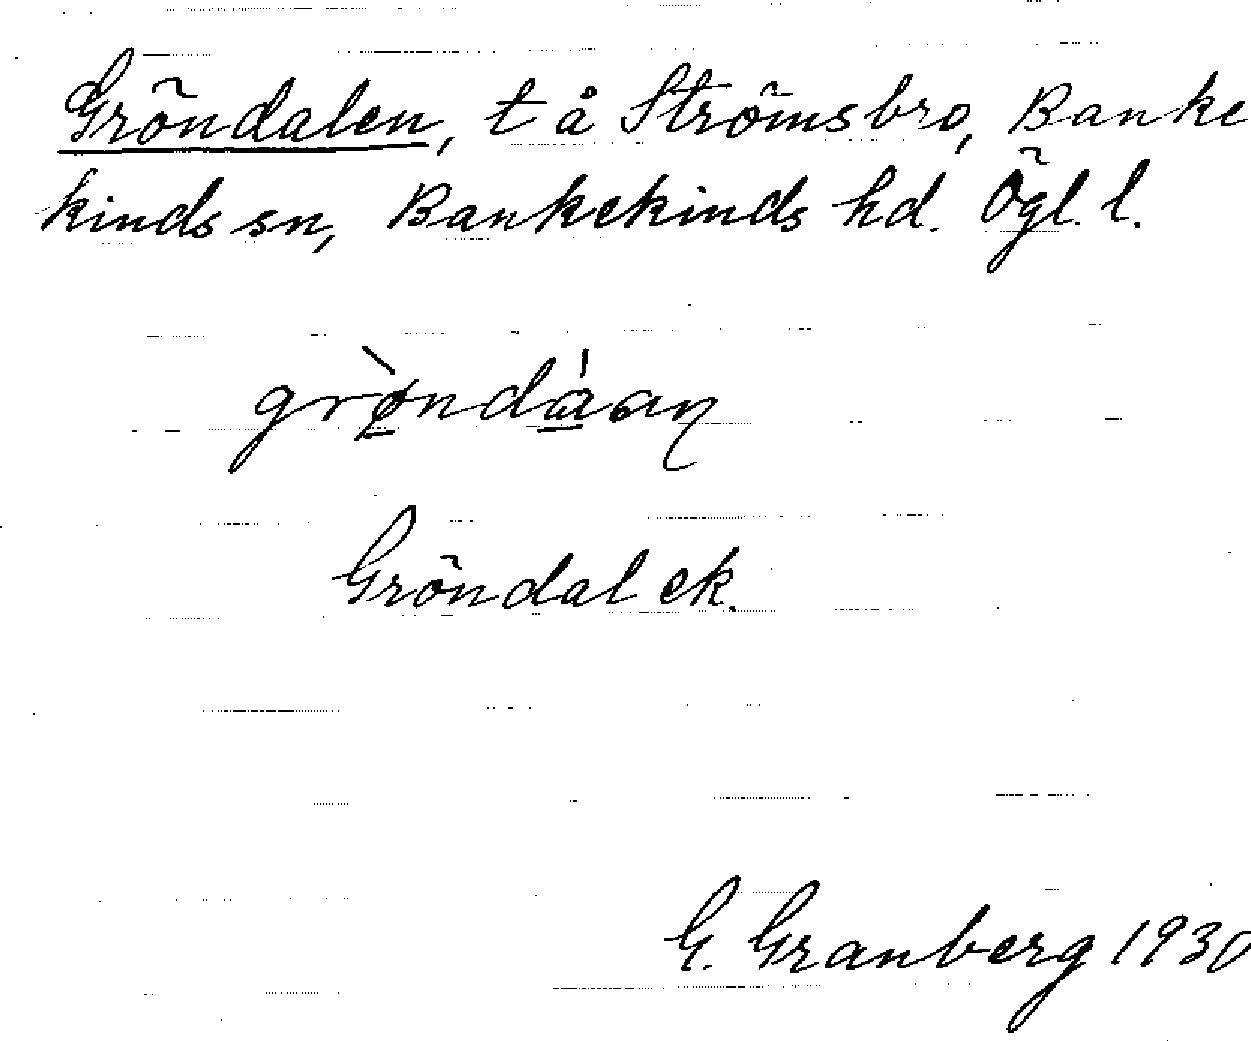 Gröndalen, t å Strömsbro, Banke
kinds sn, Bankekinds hd. Ögl. l.
grø̀ndáan
Gröndal ek.
G. Granberg 1930